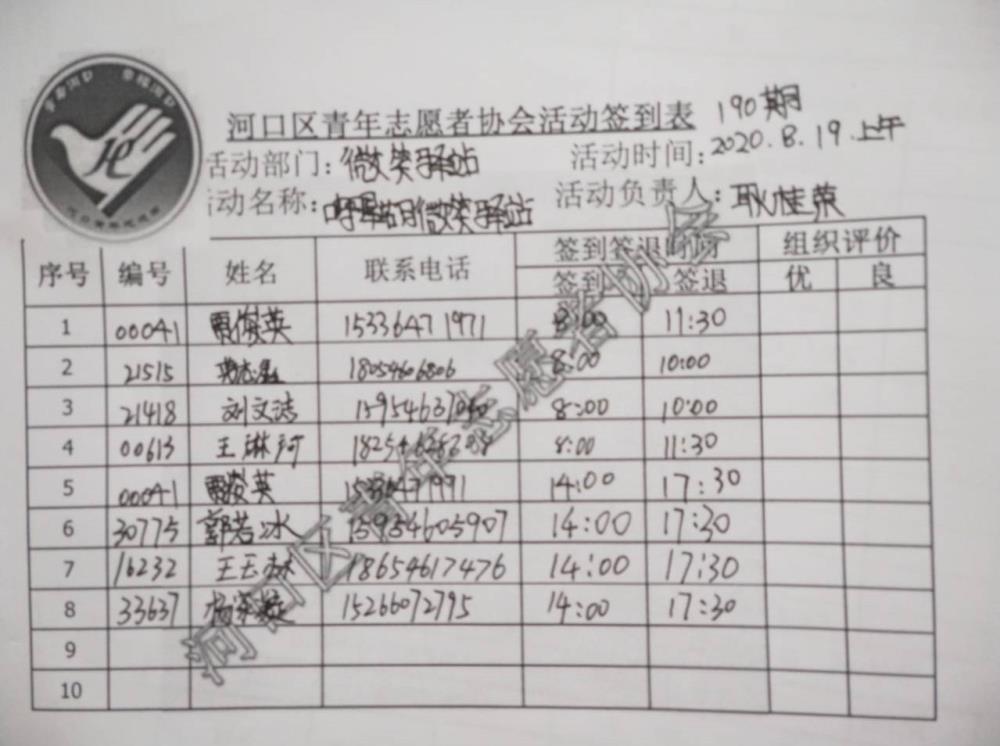 河口区青年志愿者协会活动签到表 190期
活动部门：微笑驿站 活动时间：2020.8.19.上午
活动名称：微笑驿站 活动负责人：耿桂荣
序号 编号 姓名 联系电话 签到签退时间 组织评价
签到 签退 优 良
1 00041 贾俊英 15336471971 8:00 11:30
2 21515 18054606806 8:00 10:00
3 21418 刘文洁 8:00 10:00
4 00613 王琳珂 8:00 11:30
5 00041 贾俊英 14:00 17:30
6 30775 郭若冰 15954605907 14:00 17:30
7 16232 王玉林 18654617476 14:00 17:30
8 33637 15266072795 14:00 17:30
9
10
河口区青年志愿者协会